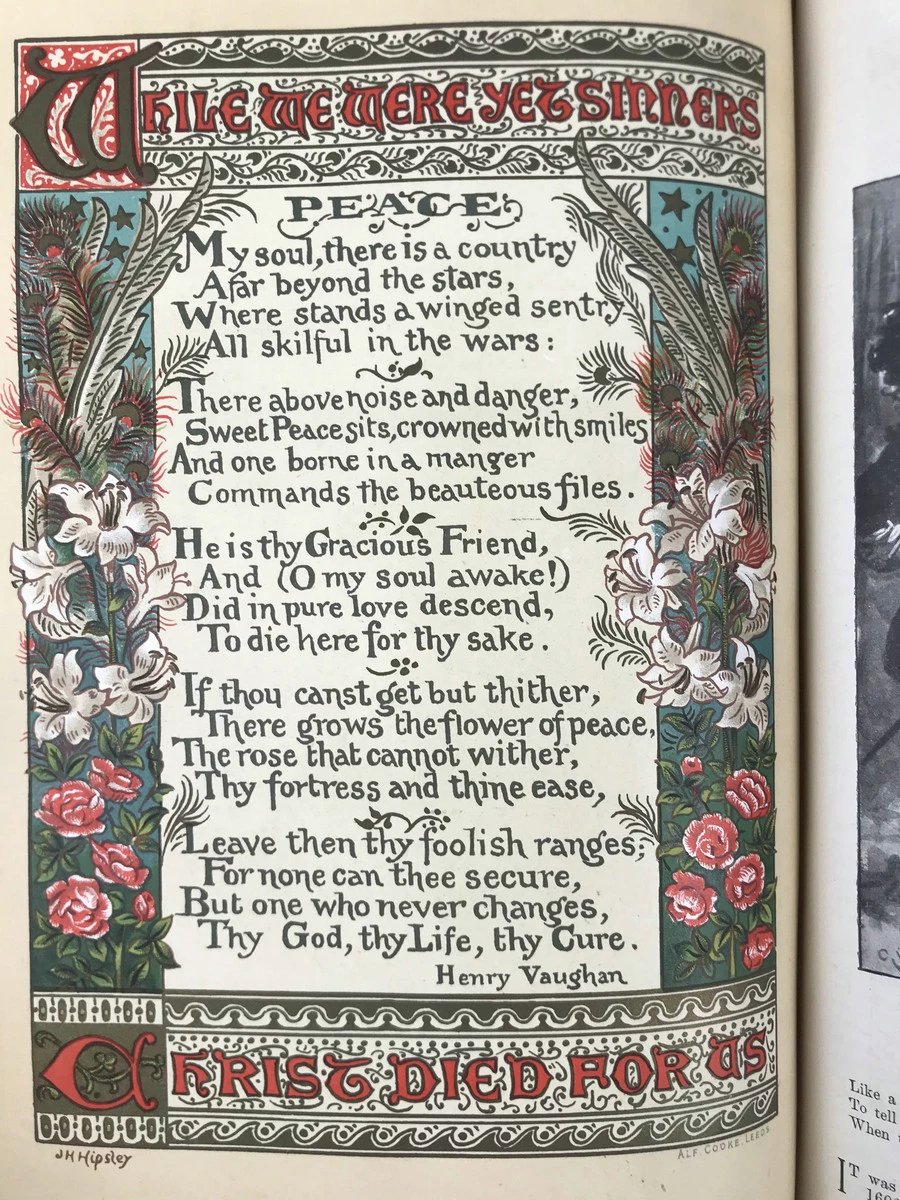 WHILE WE WERE YET SINNERS
PEACE
My soul, there is a country
Afar beyond the stars,
Where stands a winged sentry
All skilful in the wars:
There above noise and danger,
Sweet Peace sits, crowned with smiles
And one borne in a manger
Commands the beauteous files.
He is thy Gracious Friend,
And (O my soul awake!)
Did in pure love descend,
To die here for thy sake.
If thou canst get but thither,
There grows the flower of peace,
The rose that cannot wither,
Thy fortress and thine ease,
Leave then thy foolish ranges;
For none can thee secure,
But one who never changes,
Thy God, thy Life, thy Cure.
Henry Vaughan
CHRIST DIED FOR US
JH Hipsley
ALF COOKE, LEEDS
Like a
To tell
When
IT was